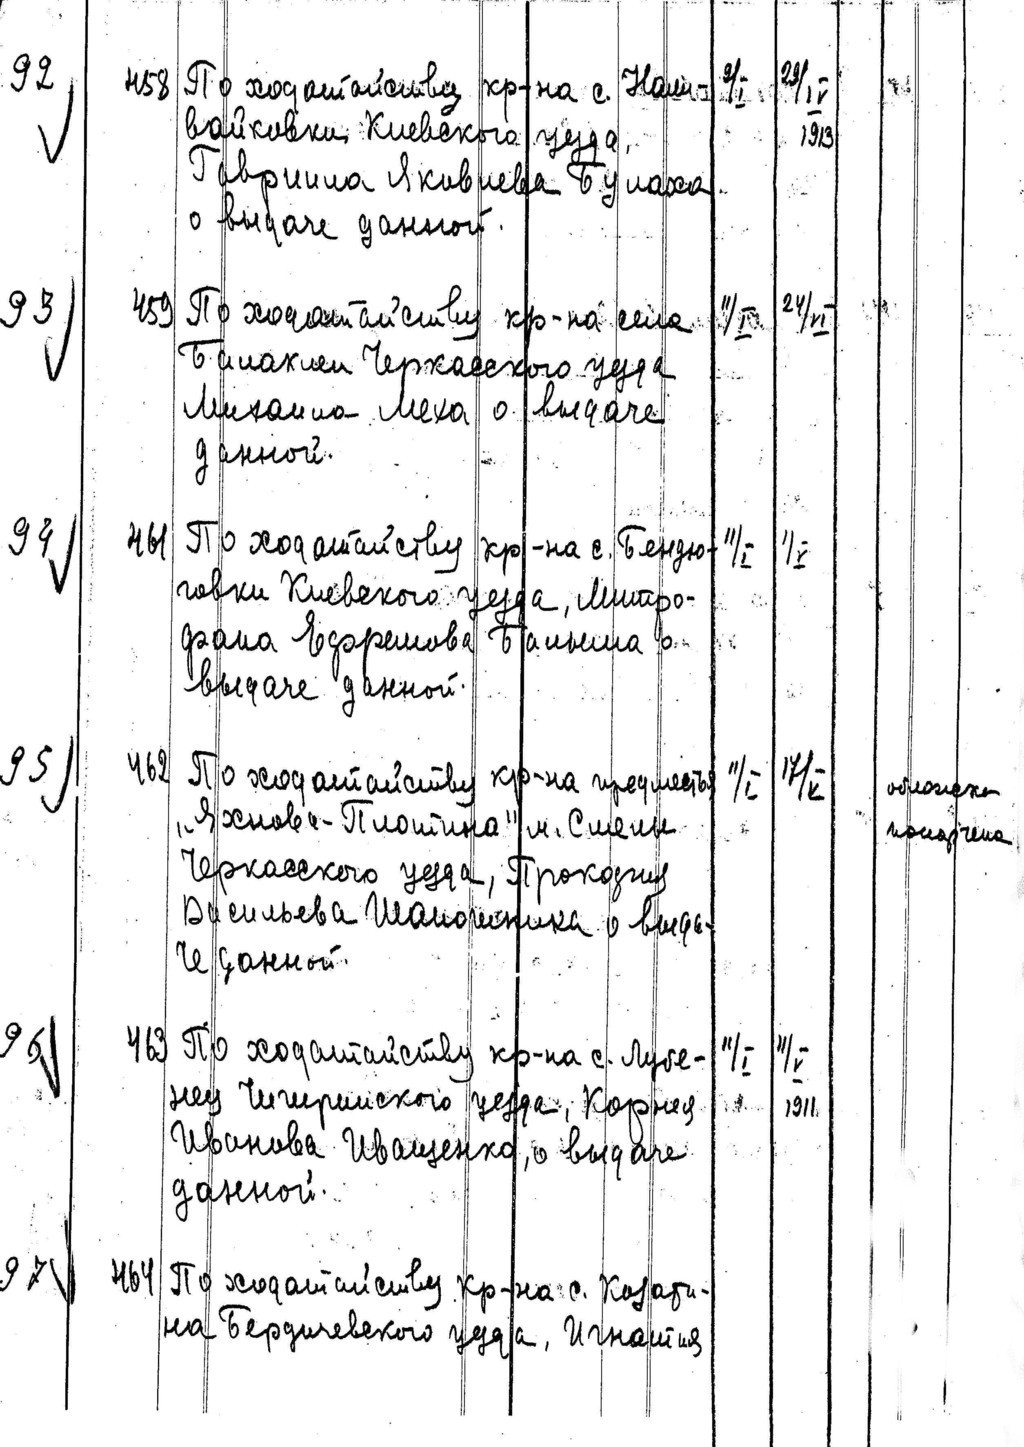 92 458 По ходатайству кр-на с. Нали- 9/I 29/IV
вайковки, Киевского уезда, 1913
Гавриила Яковлева Булаха
о выдаче данной.
93 459 По ходатайству кр-на села 11/I 24/VI
Балаклеи Черкасского уезда
Михаила Меха о выдаче
данной.
94 461 По ходатайству кр-на с. Бендю- 11/I 1/V
говки Киевского уезда, Митро-
фана Ефремова Балыша о
выдаче данной.
95 462 По ходатайству кр-на предместья 11/I 17/V обложка
„Яхнова-Плотина" м. Смелы испорчена
Черкасского уезда, Прокофия
Васильева Шапошника о выда-
че данной.
96 463 По ходатайству кр-на с. Лубе- 11/I 11/V
нец Чигиринского уезда, Корнея 1911
Иванова Иващенко, о выдаче
данной.
97 464 По ходатайству кр-на с. Козати-
на Бердичевского уезда, Игнатия